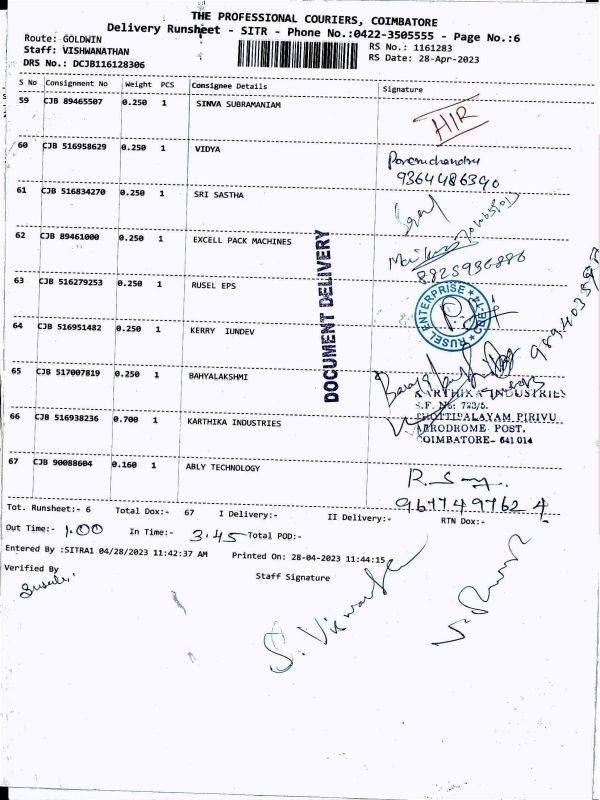 THE PROFESSIONAL COURIERS, COIMBATORE
Delivery Runsheet - SITR - Phone No.:0422-3505555 - Page No.:6
Route: GOLDWIN
RS No.: 1161283
Staff: VISHWANATHAN
RS Date: 28-Apr-2023
DRS No.: DCJB116128306
S No Consignment No Weight PCS Consignee Details Signature
59 CJB 89465507 0.250 1 SINVA SUBRAMANIAM
H/R
60 CJB 516958629 0.250 1 VIDYA
9364486390
61 CJB 516834270 0.250 1 SRI SASTHA
62 CJB 89461000 0.250 1 EXCELL PACK MACHINES
8825936886
63 CJB 516279253 0.250 1 RUSEL EPS
RUSEL ENTERPRISE
DOCUMENT DELIVERY
64 CJB 516951482 0.250 1 KERRY IUNDEV
65 CJB 517007819 0.250 1 BAHYALAKSHMI
KARTHIKA INDUSTRIES
66 CJB 516938236 0.700 1 KARTHIKA INDUSTRIES
PIRIVU
AERODROME POST,
COIMBATORE- 641 014
67 CJB 90088604 0.160 1 ABLY TECHNOLOGY
9677497624
Tot. Runsheet:- 6 Total Dox:- 67 I Delivery:- II Delivery:- RTN Dox:-
Out Time:- 1.00 In Time:- 3.45 Total POD:-
Entered By :SITRA1 04/28/2023 11:42:37 AM Printed On: 28-04-2023 11:44:15
Verified By
Staff Signature